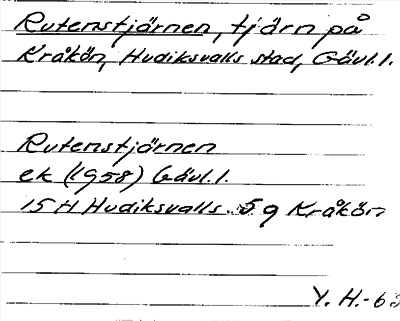 Rutenstjärnen, tjärn på
Kråkön, Hudiksvalls stad, Gävl. l.
Rutenstjärnen
ek (1958) Gävl. l.
15 H Hudiksvalls 5 g Kråkön
Y. H.-63